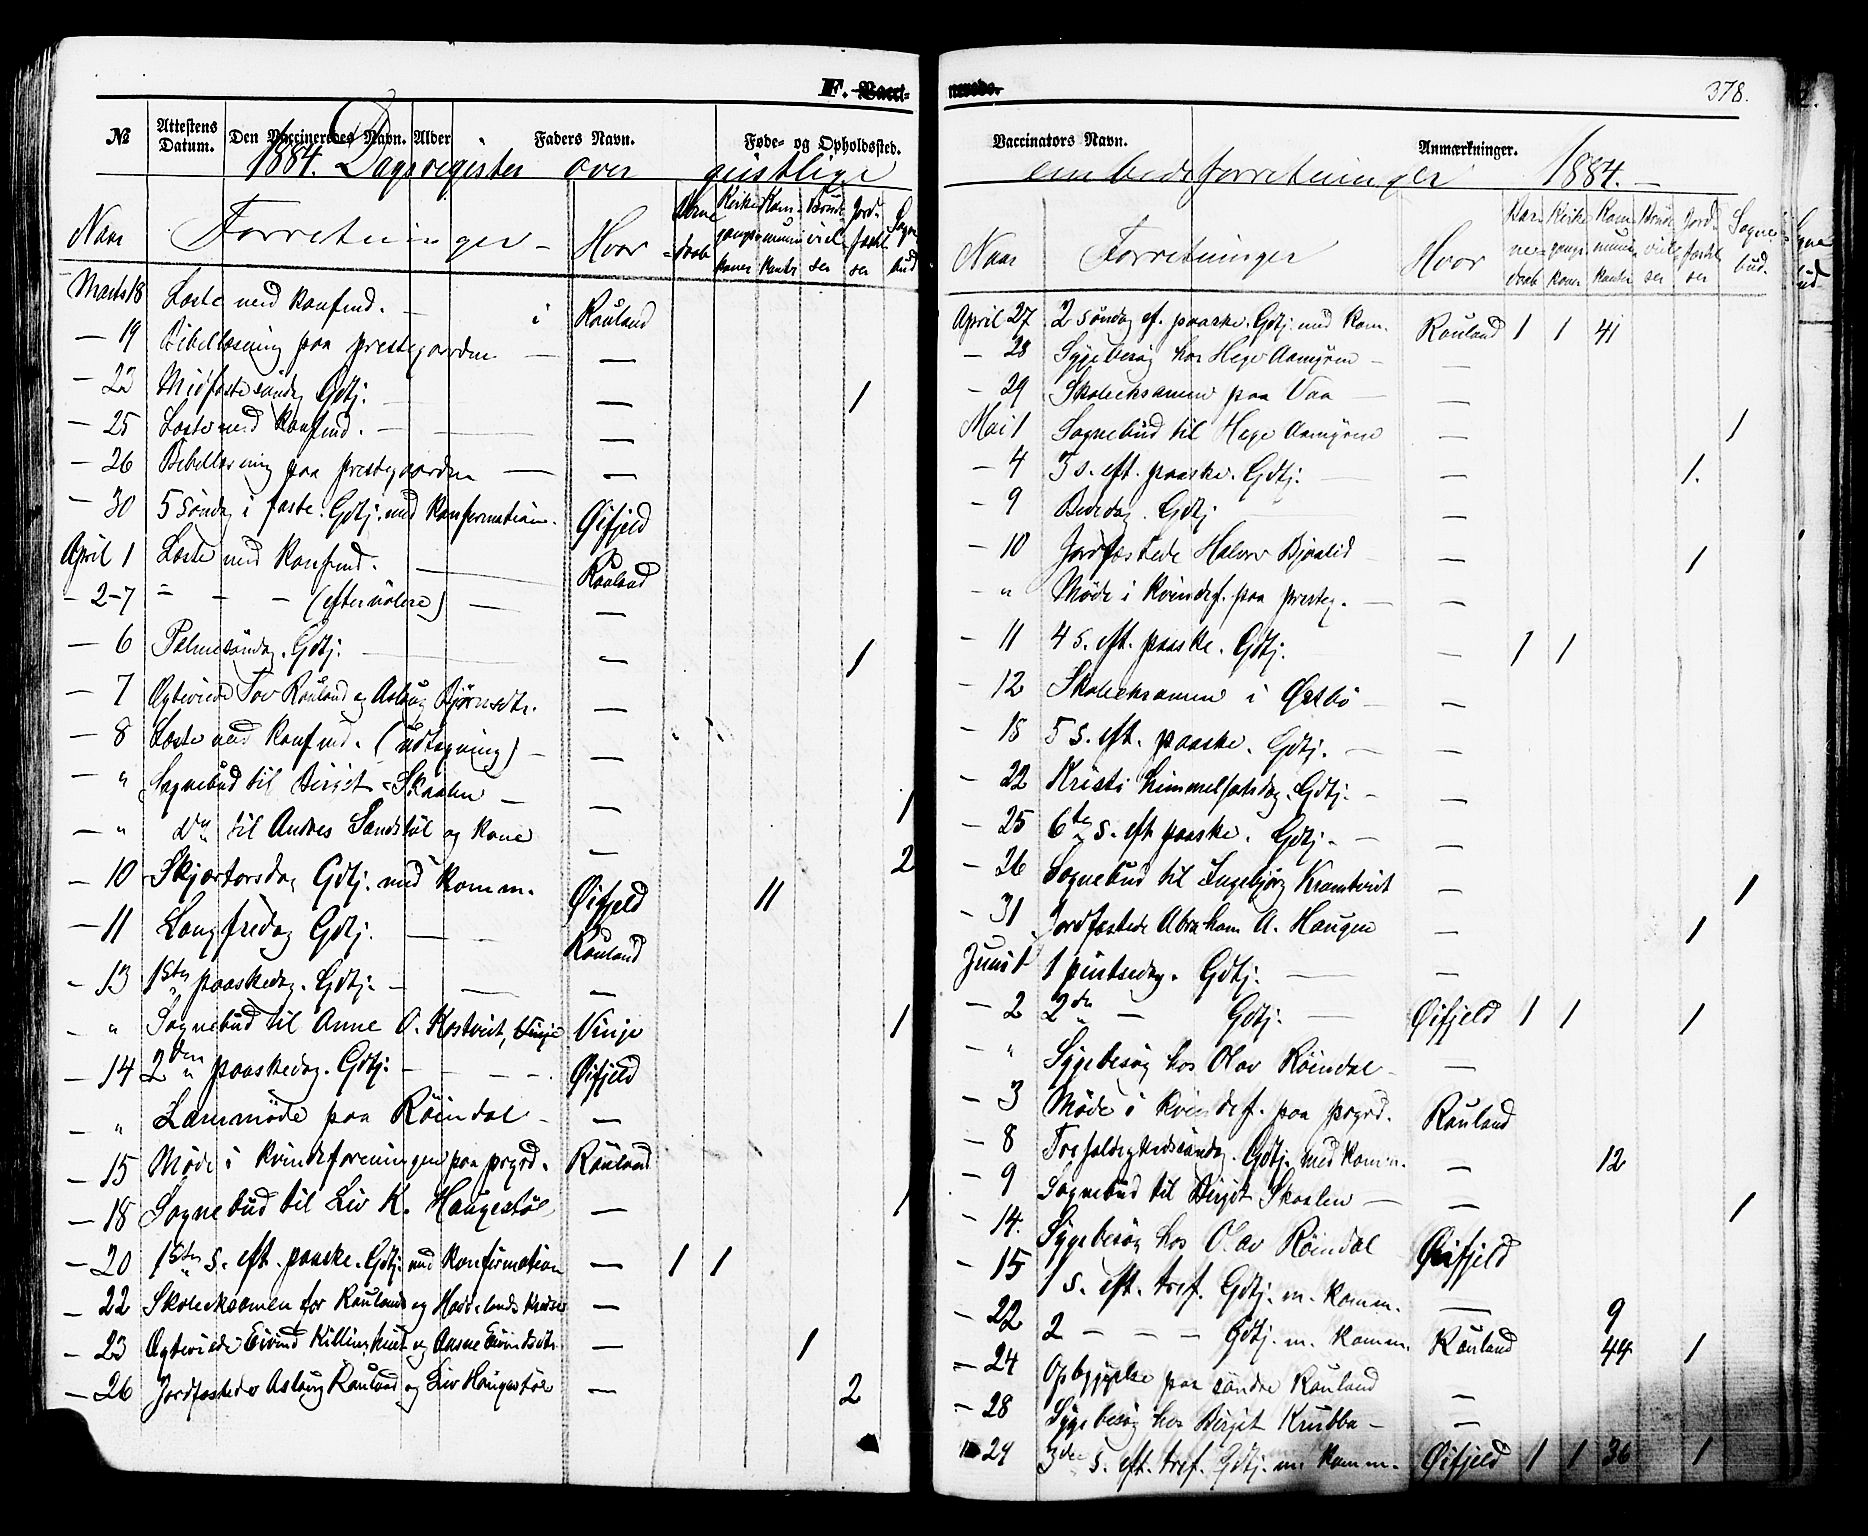 F. Vacci-
№ Attestens Datum. Den Vaccineredes Navn. Alder Faders Navn. Føde- og Opholdssted.
1884. Dagsregister over geistlige
Naar Forretninger Hvor Barnedaab Kirkegangskoner Kommunikanter Brudevielser Jordfæstelser Sognebud
Marts 18 Læste med konfmd. i Rauland
— 19 Bibellæsning paa prestegaarden — —
— 23 Midfastesöndag Gdtj. — 1
— 25 Læste med konfmd. — —
— 26 Bibellæsning paa prestegaarden — —
— 30 5 söndag i faste. Gdtj. med konfirmation. Øifjeld
April 1 Læste med konfmd. — Rauland
— 2-7 — — — (efternölere) — —
— 6 Palmesöndag. Gdtj. — — 1
— 7 Ægteviede Tov Rauland og Aslaug Björnsdtr. —
— 8 Læste med konfmd. (udtegning) — —
— " Sognebud til Birgit Skaalen — — 1
— " do til Andres Sandstöl og kone — 2
— 10 Skjærtorsdag Gdtj. med komm. Øifjeld 11
— 11 Langfredag Gdtj. — — Rauland
— 13 1ste paaskedag. Gdtj. — — —
— " Sognebud til Anne O. Kostveit, Vinje Vinje 1
— 14 2den paaskedag. Gdtj. — — — Øifjeld
— " Læremöde paa Röindal — —
— 15 Möde i kvindeforeningen paa prgrd. Rauland
— 18 Sognebud til Liv K. Haugestöl — 1
— 20 1ste s. eft. paaske. Gdtj. med konfirmation — 1 1
— 22 Skoleeksamen for Raulands og —
— 23 Ægteviede Eivind og Aasne Eivindsdtr. — 1
— 26 Jordfæstede Aslaug Rauland og Liv Haugestöl — 2
nerede. 378.
Vaccinators Navn. Anmærkninger.
embedsforretninger 1884. —
Naar Forretninger Hvor Barnedaab Kirkegangskoner Kommunikanter Brudevielser Jordfæstelser Sognebud.
April 27 2 söndag ef. paaske. Gdtj. med kom. Rauland 1 1 41
— 28 Sygebesög hos Hege Aamyren — —
— 29 Skoleeksamen paa Vaa — —
Mai 1 Sognebud til Hege Aamyren — 1
— 4 3 s. eft. paaske. Gdtj. — — 1.
— 9 Bededag. Gdtj — —
— 10 Jordfæstede Halvor Bjaalid — — 1
— " Möde i kvindef. paa presteg. — —
— 11 4 s. eft. paaske. Gdtj. — 1 1
— 12 Skoleeksamen i Østbö — —
— 18 5 s. eft. paaske. Gdtj. — —
— 22 Kristi himmelfartsdag. Gdtj. — —
— 25 6te s. eft paaske. Gdtj. — —
— 26 Sognebud til Ingebjörg Kromtveit — 1
— 31 Jordfæstede Abraham A. Haugen — 1
Juni 1 1 pintsedag. Gdtj. — —
— 2 2den — Gdtj. — Øifjeld 1 1 1
— " Sygebesög hos Olav Röindal — —
— 3 Möde i kvindef. paa prgrd. Rauland
— 8 Trefoldighedssöndag. Gdtj. med komm. — 12
— 9 Sognebud til Birgit Skaalen — — 1
— 14. Sygebesög hos Olav Röindal Øifjeld
— 15 1 s. eft. tref. Gdtj. m. komm. — 9
— 22 2 — — — Gdtj. m. komm. Rauland 44 1
— 24 Opbyggelse paa söndre Rauland —
— 28 Sygebesög hos Birgit Krubba — —
— 29 3die s. eft. tref. Gdtj. m komm. Øifjeld 1 1 36 1